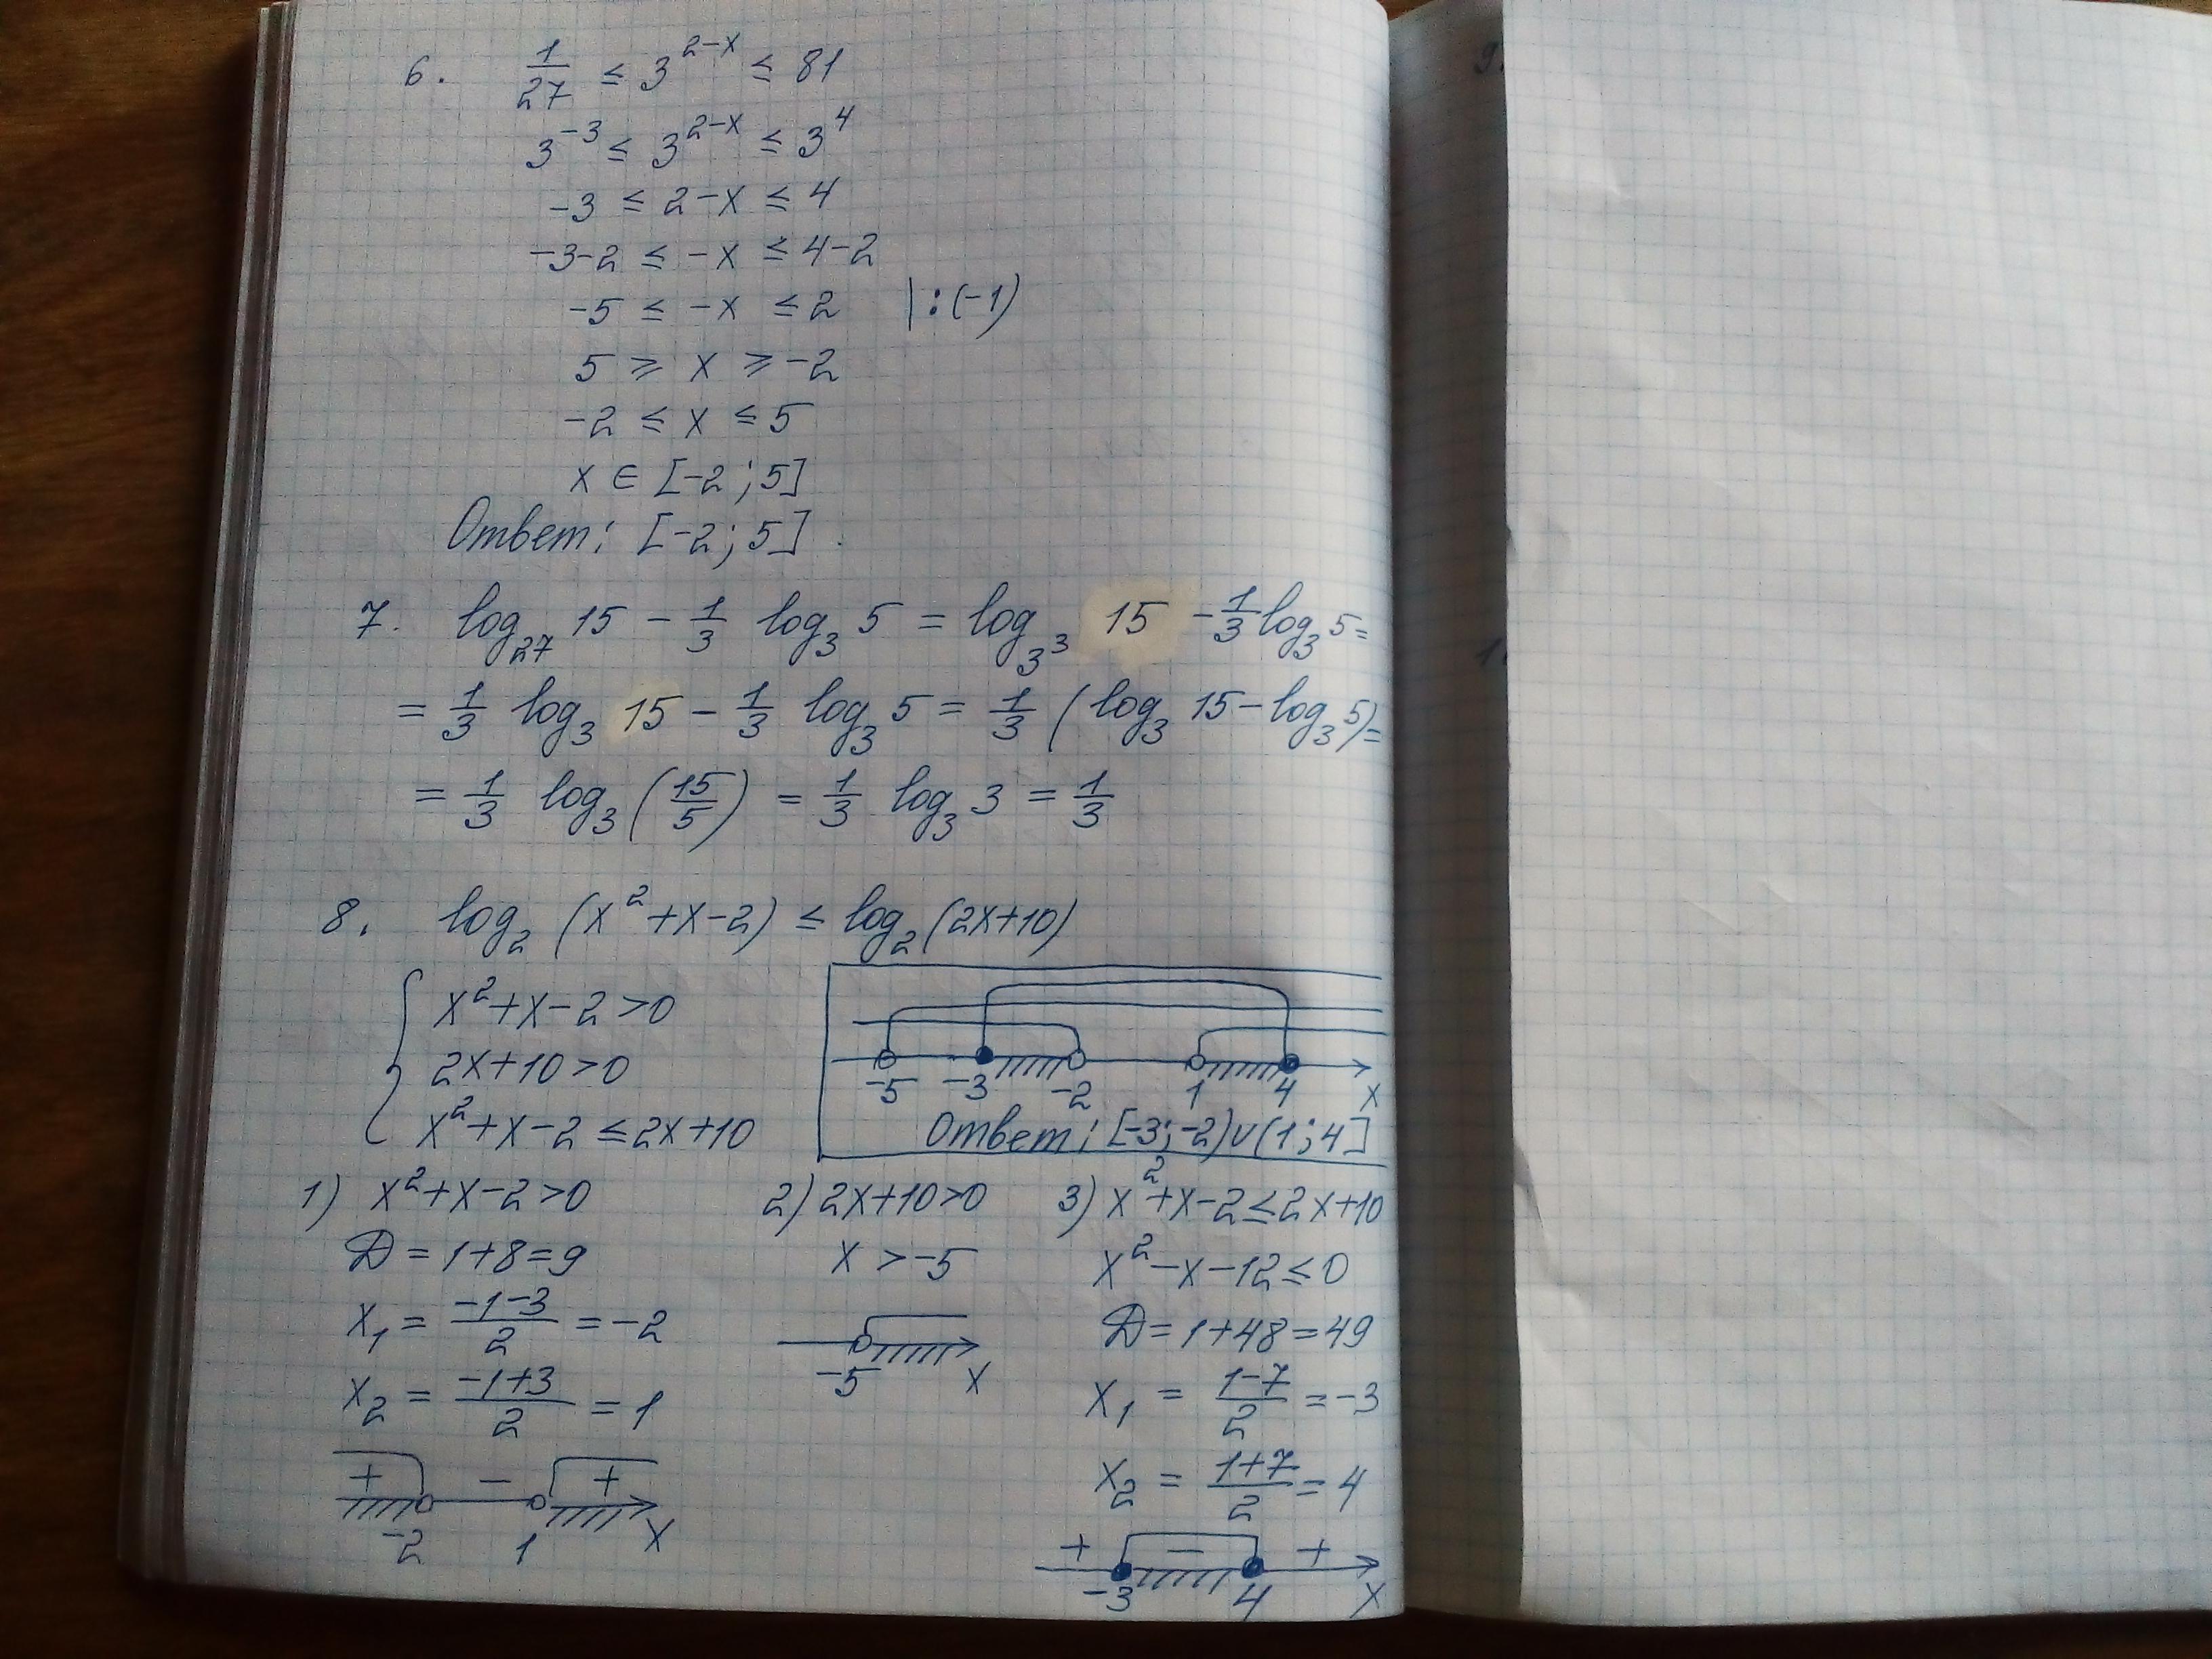 6. 1/27 ≤ 3^(2-x) ≤ 81
3^(-3) ≤ 3^(2-x) ≤ 3^4
-3 ≤ 2-x ≤ 4
-3-2 ≤ -x ≤ 4-2
-5 ≤ -x ≤ 2 | :(-1)
5 ≥ x ≥ -2
-2 ≤ x ≤ 5
x ∈ [-2; 5]
Ответ: [-2; 5].
7. log₂₇ 15 - 1/3 log₃ 5 = log_(3³) 15 - 1/3 log₃ 5 =
= 1/3 log₃ 15 - 1/3 log₃ 5 = 1/3 (log₃ 15 - log₃ 5) =
= 1/3 log₃ (15/5) = 1/3 log₃ 3 = 1/3
8. log₂ (x²+x-2) ≤ log₂ (2x+10)
{ x²+x-2>0
2x+10>0
x²+x-2 ≤ 2x+10
-5 -3 -2 1 4 x
Ответ: [-3; -2)∪(1; 4]
1) x²+x-2>0
D = 1+8=9
x₁ = (-1-3)/2 = -2
x₂ = (-1+3)/2 = 1
+ - +
-2 1 x
2) 2x+10>0
x > -5
-5 x
3) x²+x-2≤2x+10
x²-x-12≤0
D = 1+48=49
x₁ = (1-7)/2 = -3
x₂ = (1+7)/2 = 4
+ - +
-3 4 x
9.